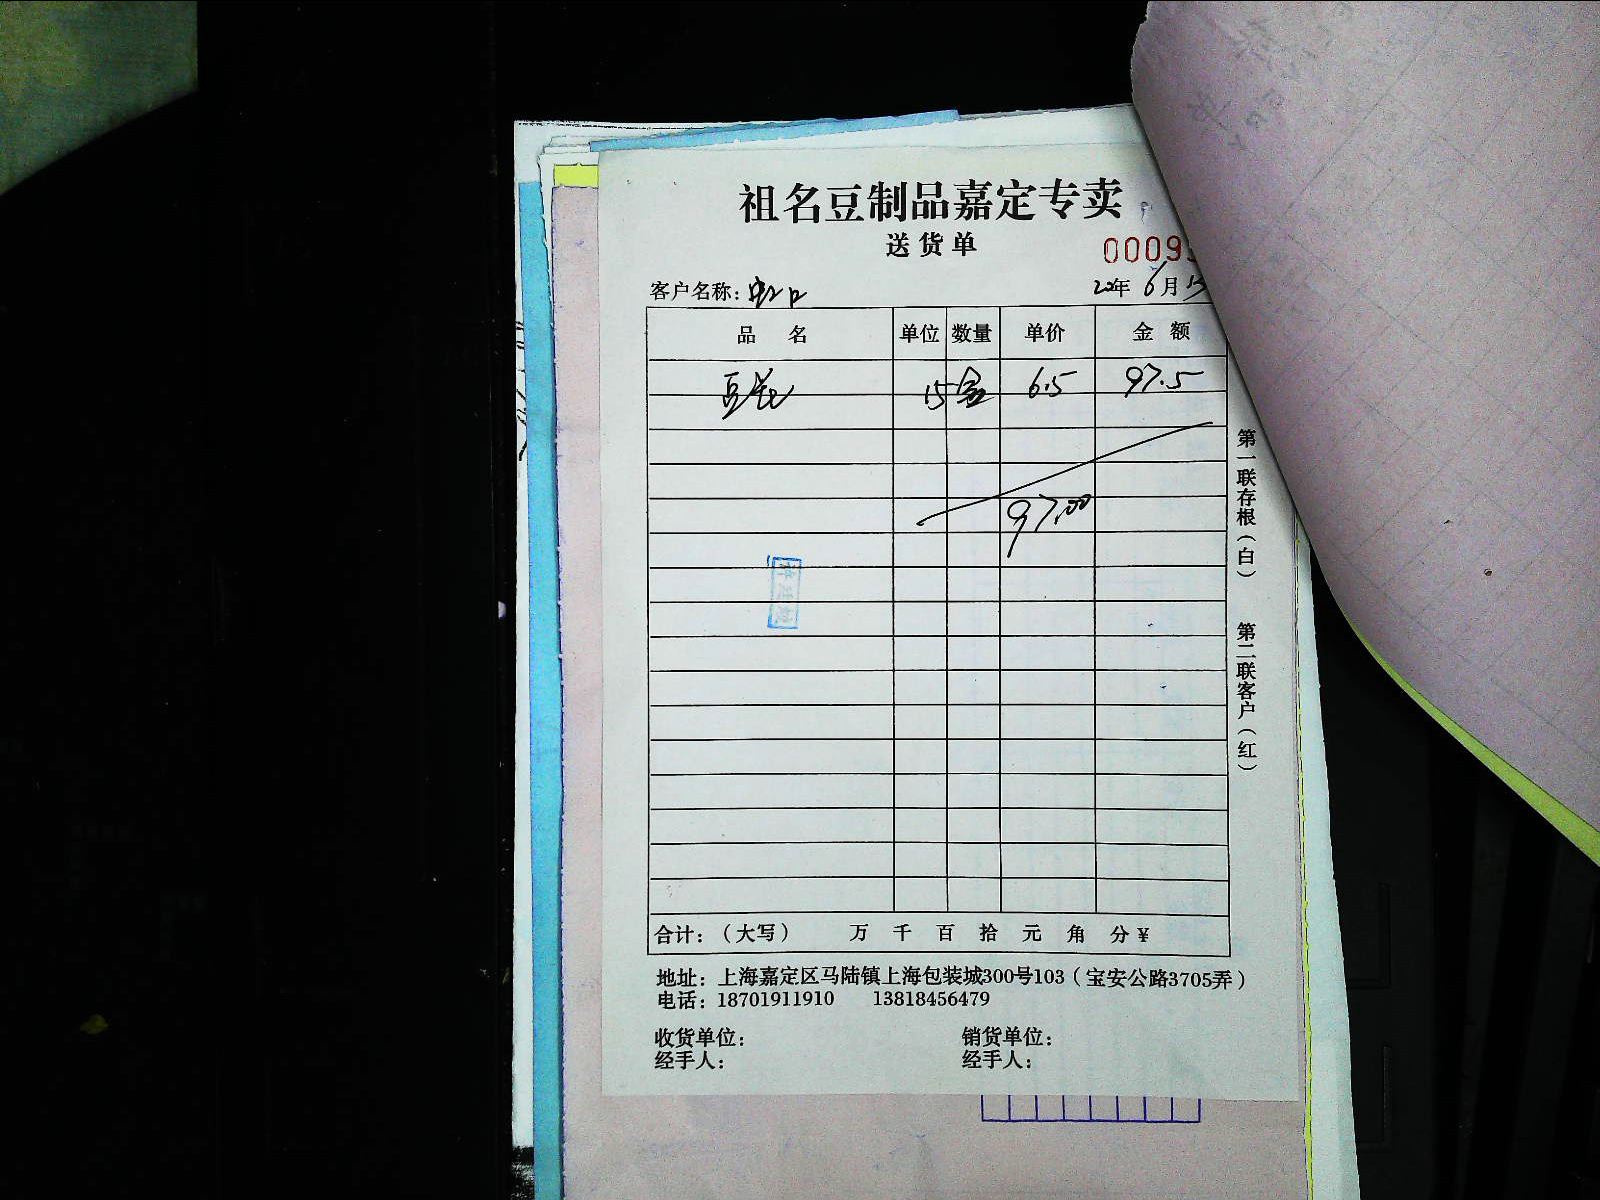 祖名豆制品嘉定专卖
送货单
0009
客户名称：虹口
22年 6月15
品名 单位 数量 单价 金额
豆花 15 盒 6.5 97.5
97.00
合计：（大写） 万 千 百 拾 元 角 分 ¥
第一联存根（白） 第二联客户（红）
地址：上海嘉定区马陆镇上海包装城300号103（宝安公路3705弄）
电话：18701911910 13818456479
收货单位： 销货单位：
经手人： 经手人：